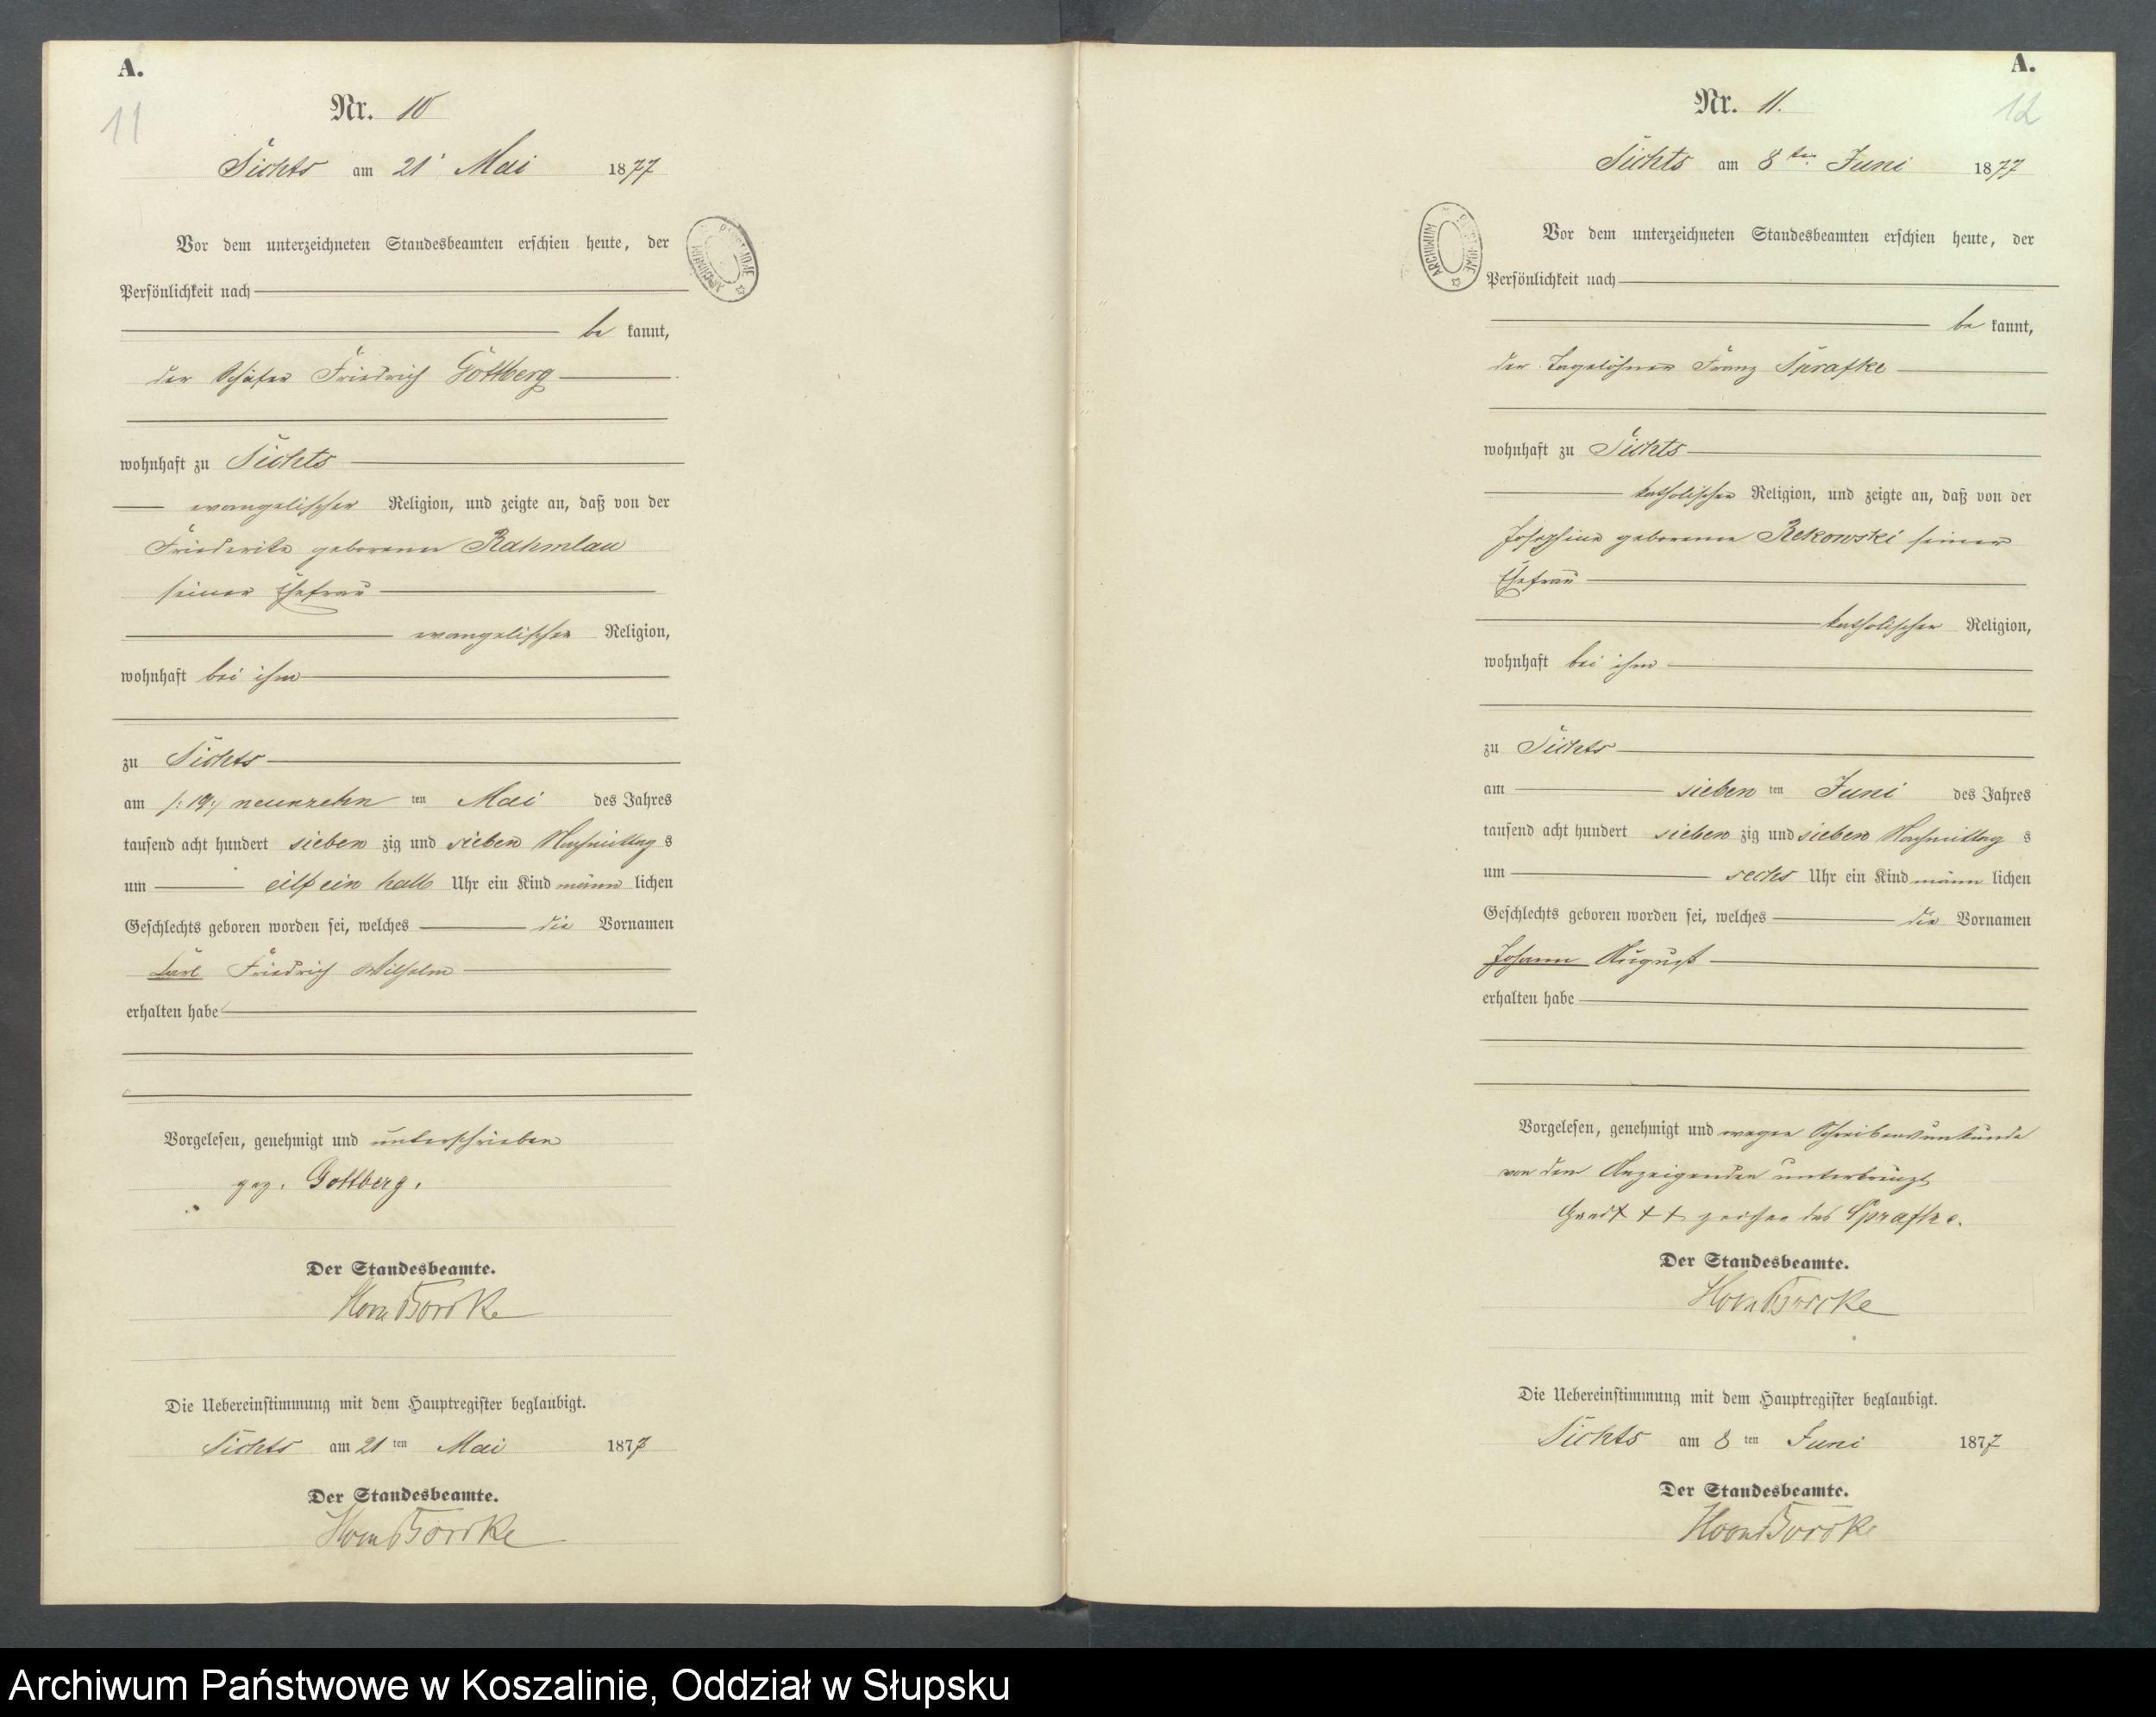 A.
11
Nr. 10
Tichts am 21t Mai 1877
Vor dem unterzeichneten Standesbeamten erschien heute, der
Persönlichkeit nach
be kannt,
der Schäfer Friedrich Gottberg
wohnhaft zu Tichts
evangelischer Religion, und zeigte an, daß von der
Friederike geborenen Rahmlau
seiner Ehefrau
evangelischer Religion,
wohnhaft bei ihm
zu Tichts
am /: 19 :/ neunzehn ten Mai des Jahres
tausend acht hundert sieben zig und sieben Nachmittag s
um eilf ein halb Uhr ein Kind männ lichen
Geschlechts geboren worden sei, welches die Vornamen
Carl Friedrich Wilhelm
erhalten habe
Vorgelesen, genehmigt und unterschrieben
gez. Gottberg.
Der Standesbeamte.
Die Uebereinstimmung mit dem Hauptregister beglaubigt.
Tichts am 21 ten Mai 1877
Der Standesbeamte.
A.
12
Nr. 11.
Tichts am 8ten Juni 1877
Vor dem unterzeichneten Standesbeamten erschien heute, der
Persönlichkeit nach
be kannt,
der Tagelöhner Franz Sprafke
wohnhaft zu Tichts
katholischer Religion, und zeigte an, daß von der
Josephine geborenen Rekowski seiner
Ehefrau
katholischer Religion,
wohnhaft bei ihm
zu Tichts
am sieben ten Juni des Jahres
tausend acht hundert sieben zig und sieben Nachmittag s
um sechs Uhr ein Kind männ lichen
Geschlechts geboren worden sei, welches die Vornamen
Johann August
erhalten habe
Vorgelesen, genehmigt und wegen Schreibensunkunde
von dem Anzeigenden unterkreuzt
Handz +++ zeichen des Sprafke.
Der Standesbeamte.
Die Uebereinstimmung mit dem Hauptregister beglaubigt.
Tichts am 8 ten Juni 1877
Der Standesbeamte.
Archiwum Państwowe w Koszalinie, Oddział w Słupsku